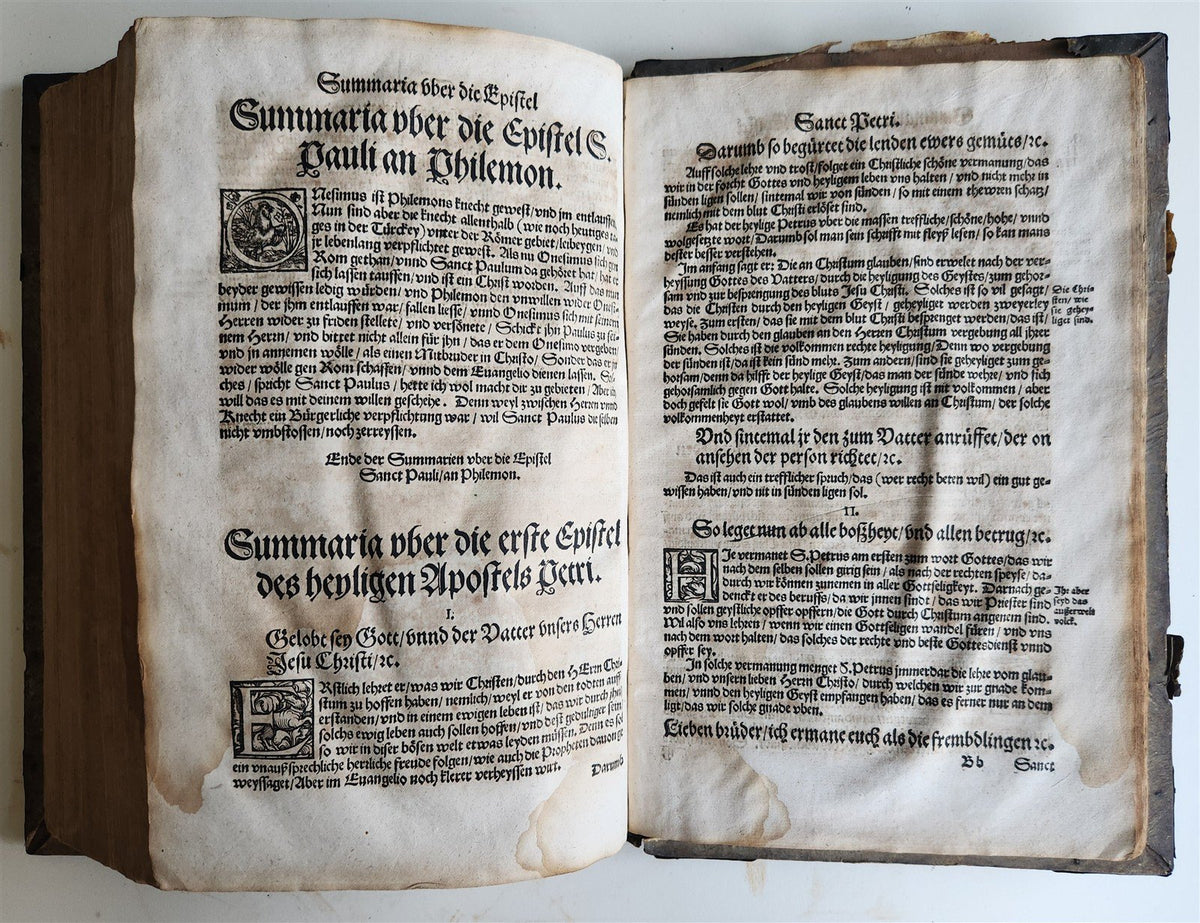 Summaria vber die Epistel
Summaria vber die Epistel S.
Pauli an Philemon.
ONesimus ist Philemons knecht gewest/vnd jm entlauffen.
Nun sind aber die knecht allenthalb (wie noch heutiges ta-
ges in der Türckey) vnter der Römer gebiet/leibeygen/vnd
jr lebenlang verpflichtet gewest. Als nu Onesimus sich gen
Rom gethan/vnnd Sanct Paulum da gehöret hat/hat er
sich lassen tauffen/vnd ist ein Christ worden. Auff das nun
beyder gewissen ledig würden/vnd Philemon den vnwillen wider Onesi-
mum/der jhm entlauffen war/fallen liesse/vnnd Onesimus sich mit seinem
Herren wider zu friden stellete/vnd versönete/Schickt jhn Paulus zu sei-
nem Herrn/vnd bittet nicht allein für jhn/das er dem Onesimo vergeben/
vnd jn annemen wölle/als einen Mitbruder in Christo/Sonder das er jn
wider wölle gen Rom schaffen/vnnd dem Euangelio dienen lassen. Sol-
ches/spricht Sanct Paulus/hette ich wol macht dir zu gebieten/Aber ich
will das es mit deinem willen geschehe. Denn weyl zwischen Herrn vnnd
Knecht ein Bürgerliche verpflichtung war/wil Sanct Paulus dieselben
nicht vmbstossen/noch zerreyssen.
Ende der Summarien vber die Epistel
Sanct Pauli/an Philemon.
Summaria vber die erste Epistel
des heyligen Apostels Petri.
I.
Gelobt sey Gott/vnnd der Vatter vnsers Herren
Jesu Christi/ꝛc.
ERstlich lehret er/was wir Christen/durch den HErrn Chri-
stum zu hoffen haben/nemlich/weyl er von den todten auff
erstanden/vnd in einem ewigen leben ist/das wir durch jhn
solchs ewig leben auch sollen hoffen/vnd dest gedultiger sein/
so wir in diser bösen welt etwas leyden müssen. Denn es sol
ein vnaußsprechliche herrliche freude folgen/wie auch die Propheten dauon ge
weyssaget/Aber im Euangelio noch klerer verheyssen wirt.
Darumb
Sanct Petri.
Darumb so begürtet die lenden ewers gemüts/ꝛc.
Auff solche lehre vnd trost/folget ein Christliche schöne vermanung/das
wir in der forcht Gottes vnd heyligem leben vns halten/vnd nicht mehr in
sünden ligen sollen/sintemal wir von sünden/so mit einem thewren schatz/
nemlich mit dem blut Christi erlöset sind.
Es hat der heylige Petrus vber die massen treffliche/schöne/hohe/vnnd
wolgesetzte wort/Darumb sol man sein schrifft mit fleyß lesen/so kan mans
dester besser verstehen.
Im anfang sagt er: Die an Christum glauben/sind erwelet nach der ver-
heyssung Gottes des Vatters/durch die heyligung des Geystes/zum gehor-
sam vnd zur besprengung des bluts Jesu Christi. Solches ist so vil gesagt/
das die Christen durch den heyligen Geyst/geheyliget werden zweyerley
weyse. Zum ersten/das sie mit dem blut Christi besprenget werden/das ist/
Sie haben durch den glauben an den Herren Christum vergebung all jhrer
sünden. Solches ist die volkommen rechte heyligung/Denn wo vergebung
der sünden ist/da ist kein sünd mehr. Zum andern/sind sie geheyliget zum ge-
horsam/denn da hilfft der heylige Geyst/das man der sünde wehre/vnd sich
gehorsamlich gegen Gott halte. Solche heyligung ist nit volkommen/aber
doch gefelt sie Gott wol/vmb des glaubens willen an Christum/der solche
volkommenheyt erstattet.
Die Chri-
sten/wie
sie gehey-
liget sind.
Vnd sintemal jr den zum Vatter anrüffet/der on
ansehen der person richtet/ꝛc.
Das ist auch ein trefflicher spruch/das (wer recht beten wil) ein gut ge-
wissen haben/vnd nit in sünden ligen sol.
II.
So leget nun ab alle boßheyt/vnd allen betrug/ꝛc.
HIe vermanet S. Petrus am ersten zum wort Gottes/das wir
nach dem selben sollen girig sein/als nach der rechten speyse/da-
durch wir können zunemen in aller Gottseligkeyt. Darnach ge-
denckt er des beruffs/da wir jnnen sindt/das wir Priester sind
vnd sollen geystliche opffer opffern/die Gott durch Christum angenem sind.
Wil also vns lehren/wenn wir einen Gottseligen wandel füren/vnd vns
nach dem wort halten/das solches der rechte vnd beste Gottesdienst vnnd
opffer sey.
Ihr aber
seyd das
außerwelt
volck.
In solche vermanung menget S. Petrus jmmerdar die lehre vom glau-
ben/vnd vnsern lieben Herrn Christo/durch welchen wir zur gnade kom-
men/vnnd den heyligen Geyst empfangen haben/das es ferner nur an dem
ligt/das wir solche gnade vben.
Lieben brüder/ich ermane euch als die frembdlingen ꝛc.
Bb Sanct